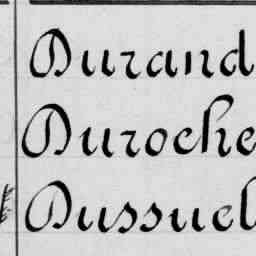 Durand
Duroche
Dussuel